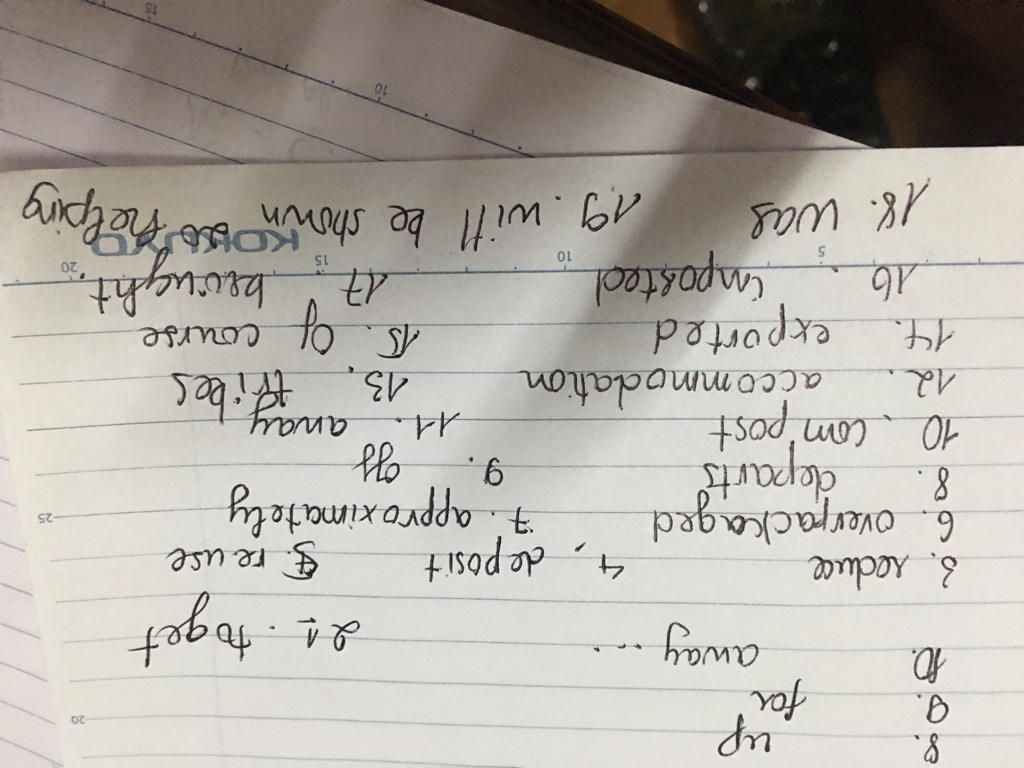 8. up
9. for
20
10. away... 21. to get
3. reduce 4. deposit 5. reuse
6. overpackaged 7. approximately
25
8. departs 9. off
10. compost 11. away
12. accommodation 13. tribes
14. exported 15. Of course
16. imposted 17. brought
5 10 15 20
KOKUYO
18. was 19. will be shown helping
10 15